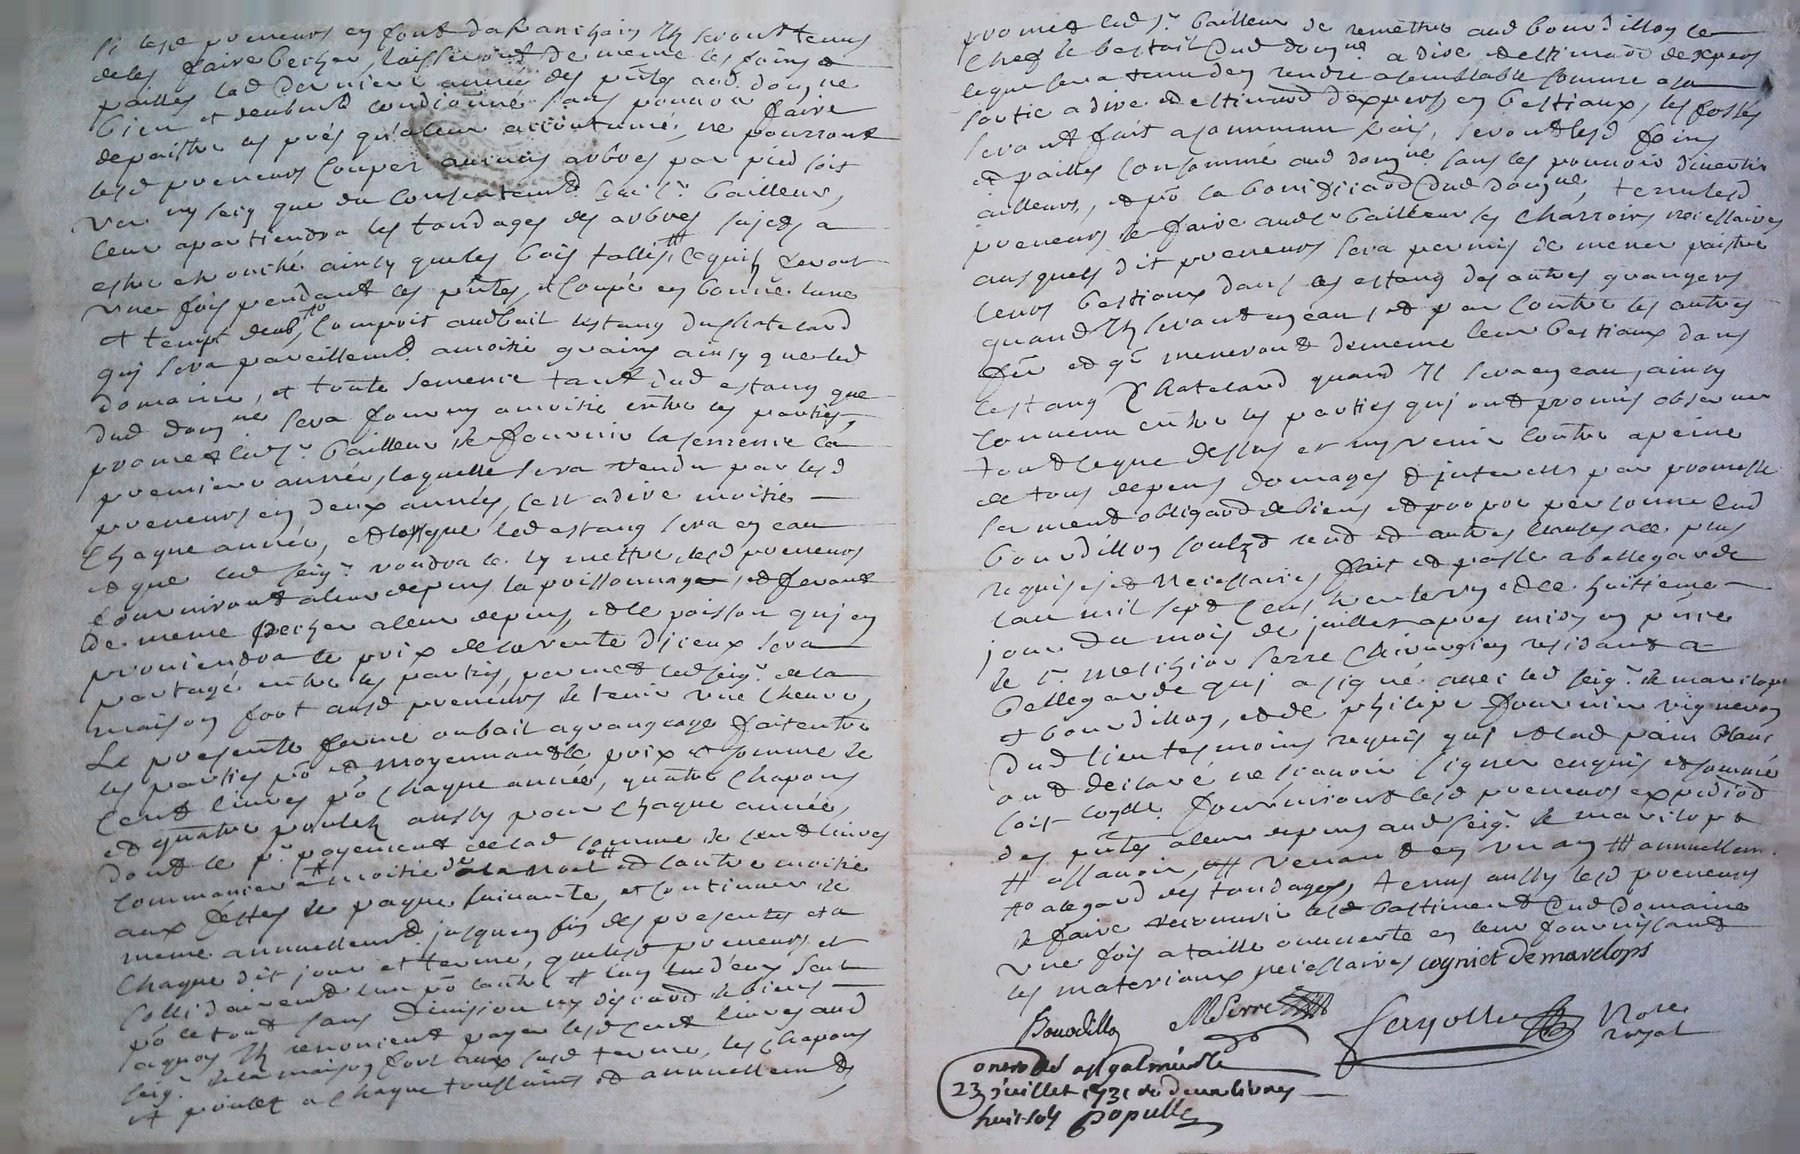 si lesd preneurs en font da franchain Ils seront tenus
de les faire becher, laisseront de meme les foins &
pailles lad derniere année des pntes aud domne
bien et deubmt condionné sans pouvoir faire
depaistre es prés qu'aleur accoutumé, ne pourront
lesd preneurs couper aucuns arbres par pied soit
ver ny secq que du consentemt dud sr bailleur,
leur apartiendra les tondages des arbres sujets a
estre ebranché ainsy que les bois tallis, lequils seront
une fois pendant les pntes, et coupé en bonne lune
et temps deub, comprit audbail lestang du Chateland
qui sera pareillemt a moitié grains ainsy que led
domaine, et toute semence tant dud estang que
dud domne sera fourny a moitié entre les parties,
promet led sr bailleur de fournir la semence la
premiere année, laquelle sera rendu par lesd
preneurs en deux années, cest a dire moitié
chaque année, et lorsque led estang sera en eau
et que led seigr voudra le ly mettre, lesd preneurs
fourniront a leur depens la poissonnage, et feront
de meme pecher a leur depens, et le poisson qui en
proviendra le prix de la vente dicieux sera
partagé entre les parties, permet led seigr de la
maison fort ausd preneurs de tenir une chevre,
La presente ferme ou bail a grangeage fait entre
les parties po et moyennant le prix et somme de
cent livres po chaque année, quatre chapons
et quatre poulets aussy pour chaque année,
dont le pr payement de lad somme de cent livres
commancera moitié a la noel et lautre moitié
aux festes de paque suivante, et continuer de
meme annuellemt jusqu'en fin des presentes et a
chaque dit jour et terme, que lesd preneurs et
sollidairement lun po lautre et lun deux seul
po le tout sans division ny discution de biens
a quoy Ils renoncent payer lesd cent livres aud
seigr de la maison fort aux susd terme, les chapons
et poulets a chaque toussaints et annuellement
promet led sr bailleur de remettre aud bourdillon le
chef de bestail dud domne a dire et estimaon dexpers
leque sera tenu den rendre a semblable somme a sa
sortie a dire et estimaon dexpers en bestiaux, les fossés
seront fait a commun frais, seront lesd foins
et pailles consommé aud domne sans les pouvoir divertir
ailleurs, et po la bonificaon dud domne, tenu lesd
preneurs de faire aud sr bailleur les charroirs necessaires
ausquels dit preneurs sera permis de mener paistre
leurs bestiaux dans les estang des autres grangers
quand Ils seront en eau, et par contre les autres
gers et qi meneront de meme leur bestiaux dans
lestang Chateland quand Il sera en eau, ainsy
convenu entre les parties qui ont promis observer
tout leque dessus et ny venir contre a peine
de tous depens domages & interests par promesse
serment obligaon de biens et propre personne dud
bourdillon soubz et rend et autres clauses a ce plus
requises et necessaires fait et passé a bellegarde
lan mil sept cens trente un et le huitieme
jour du mois de juillet apres midy en pnce
de sr Melchior Serre Chirurgien residant a
bellegarde qui a signé avec led seigr de marclopt
et bourdillon, et de philipe fournier vigneron
dud lieu tesmoins requis qui et lad pain blanc
ont declaré ne scavoir signer enquis et sommé
soit contlé. fourniront lesd preneurs expedion
des pntes a leur depens aud seigr de marclopt
# assavoir, # venant en un an # annuellem.
to a legard des tondages, tenus aussy lesd preneurs
de faire recouvrir lesd bastiment dud domaine
une fois a taille ouverte en leur fournissant
les materiaux necessaires cogniet de marclops
Bourdillon MSerre fayolle Nore
royal
onerolé a st galmier le
23 juillet 1731 rs deux livres
huit sols Populle